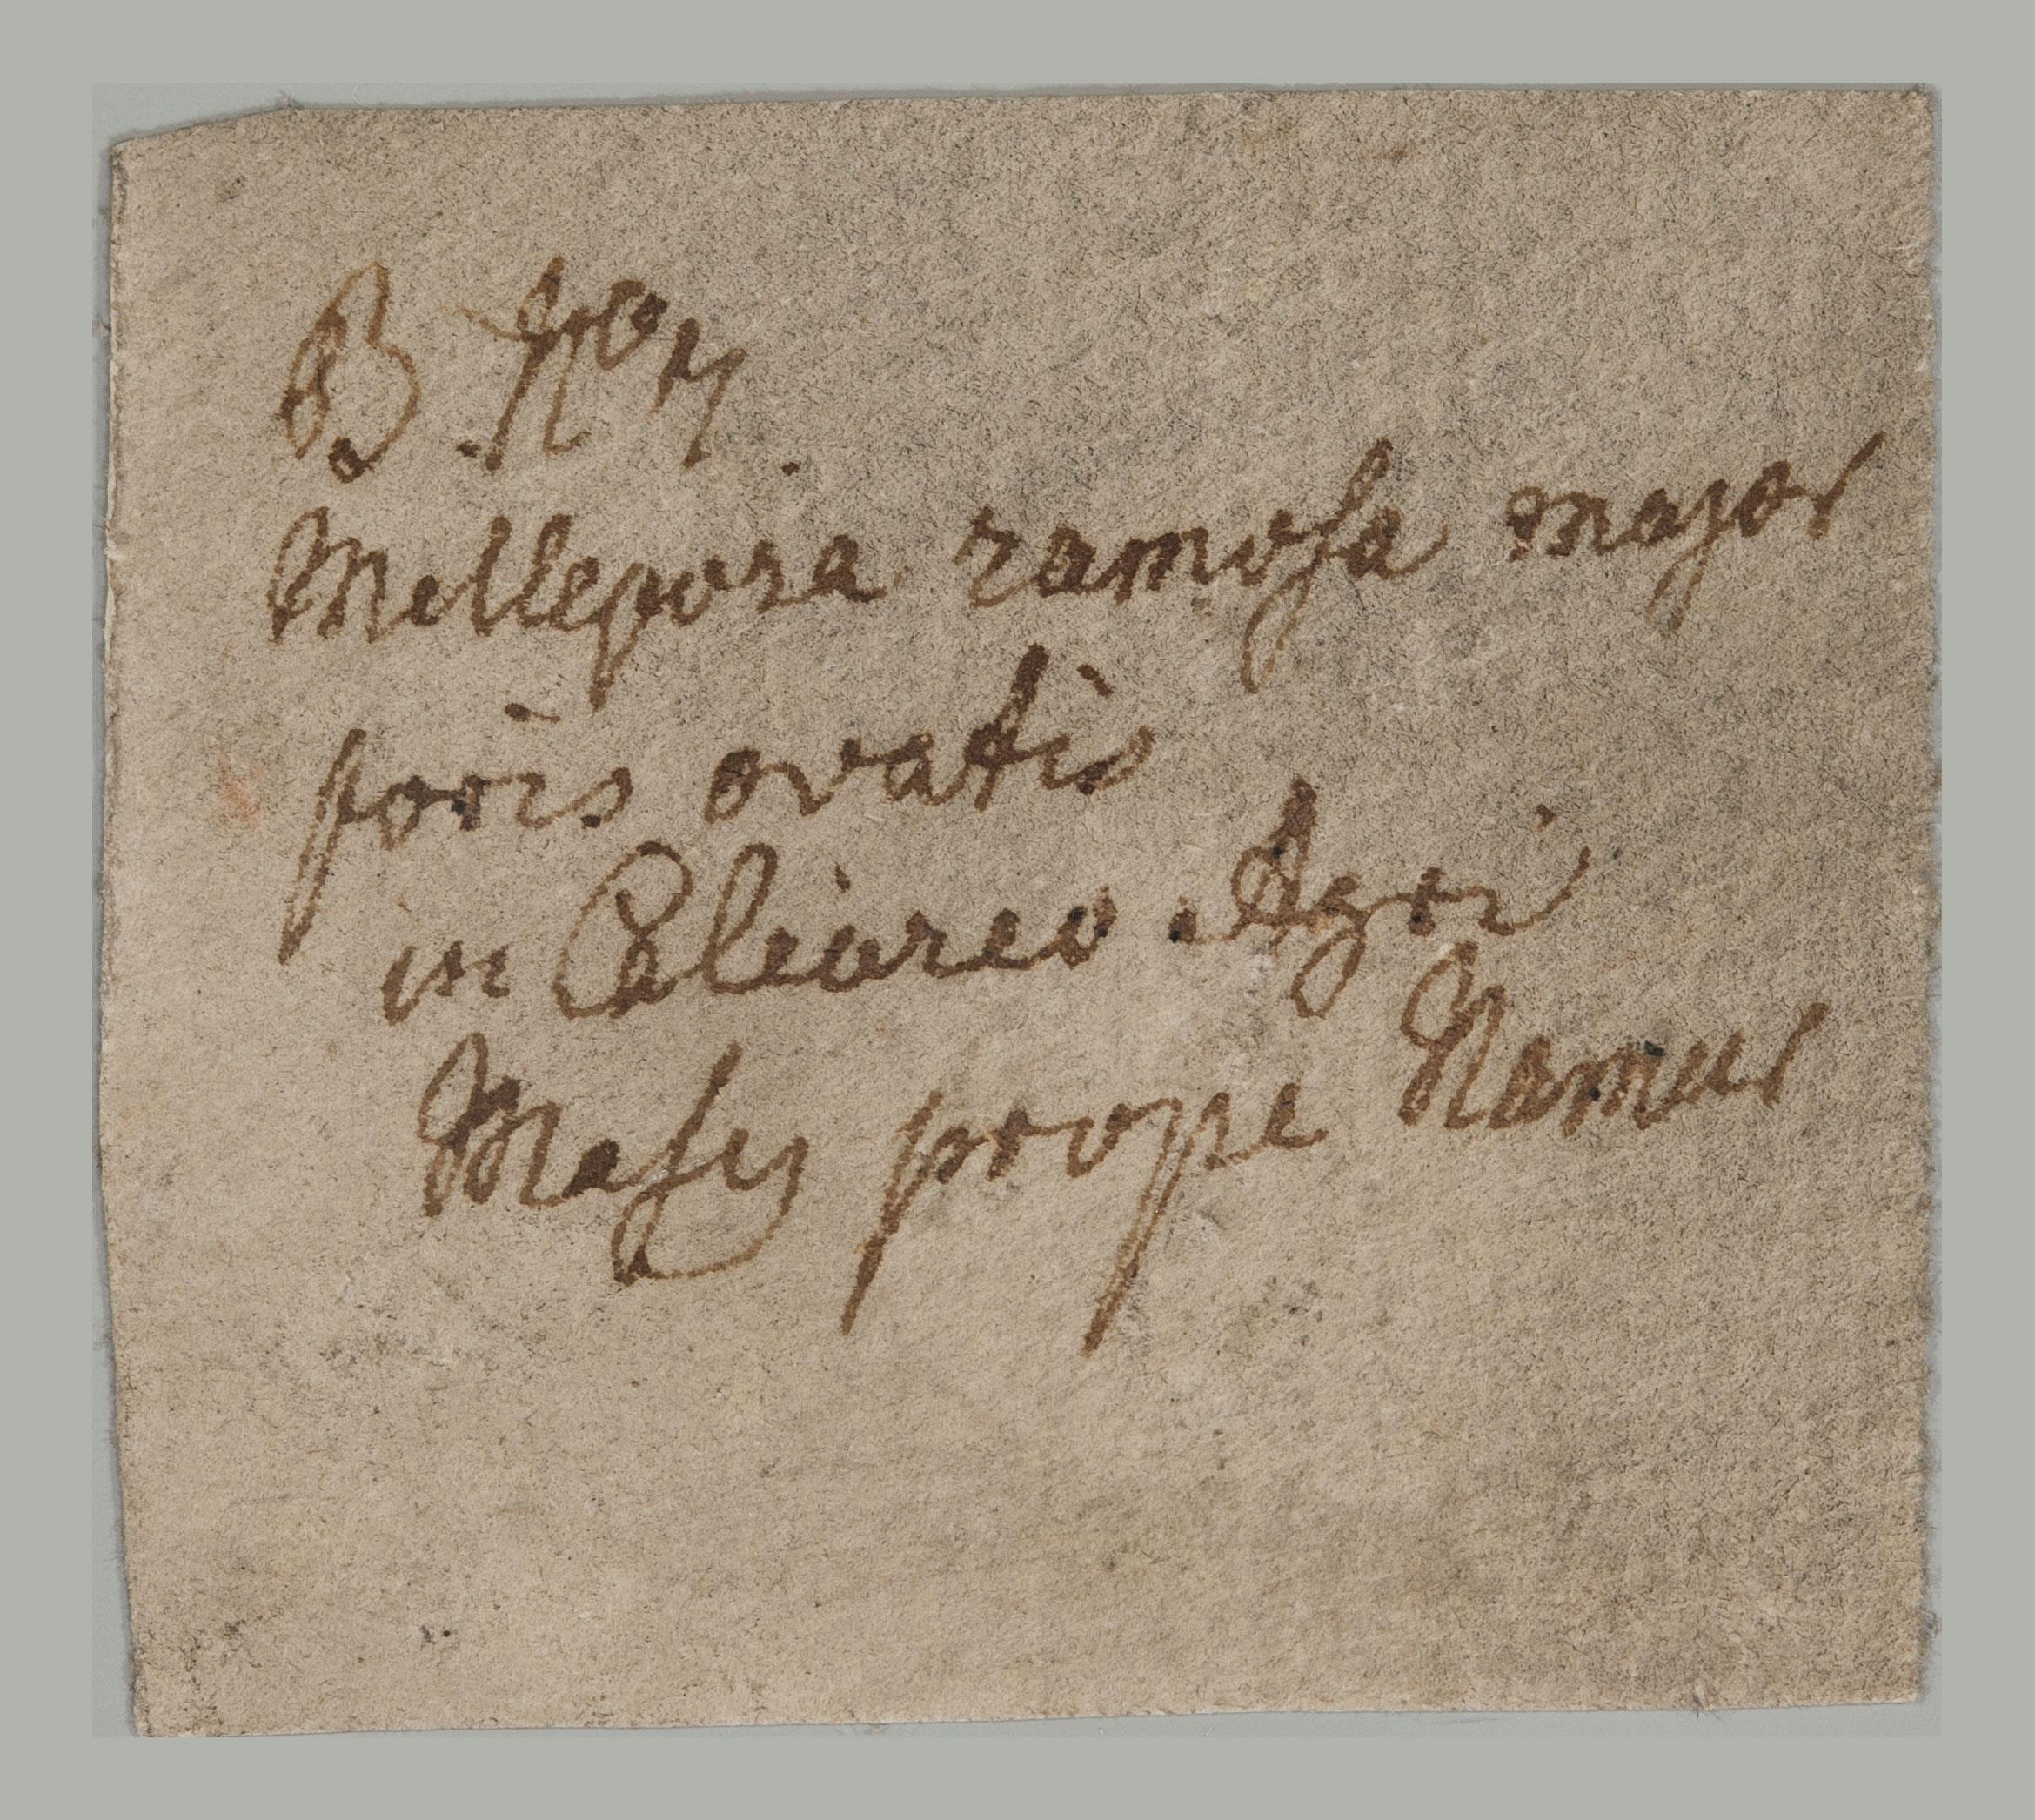 B N°
Millepora ramosa major
poris ovatis
in Calcareo Agri
Masy prope Namur